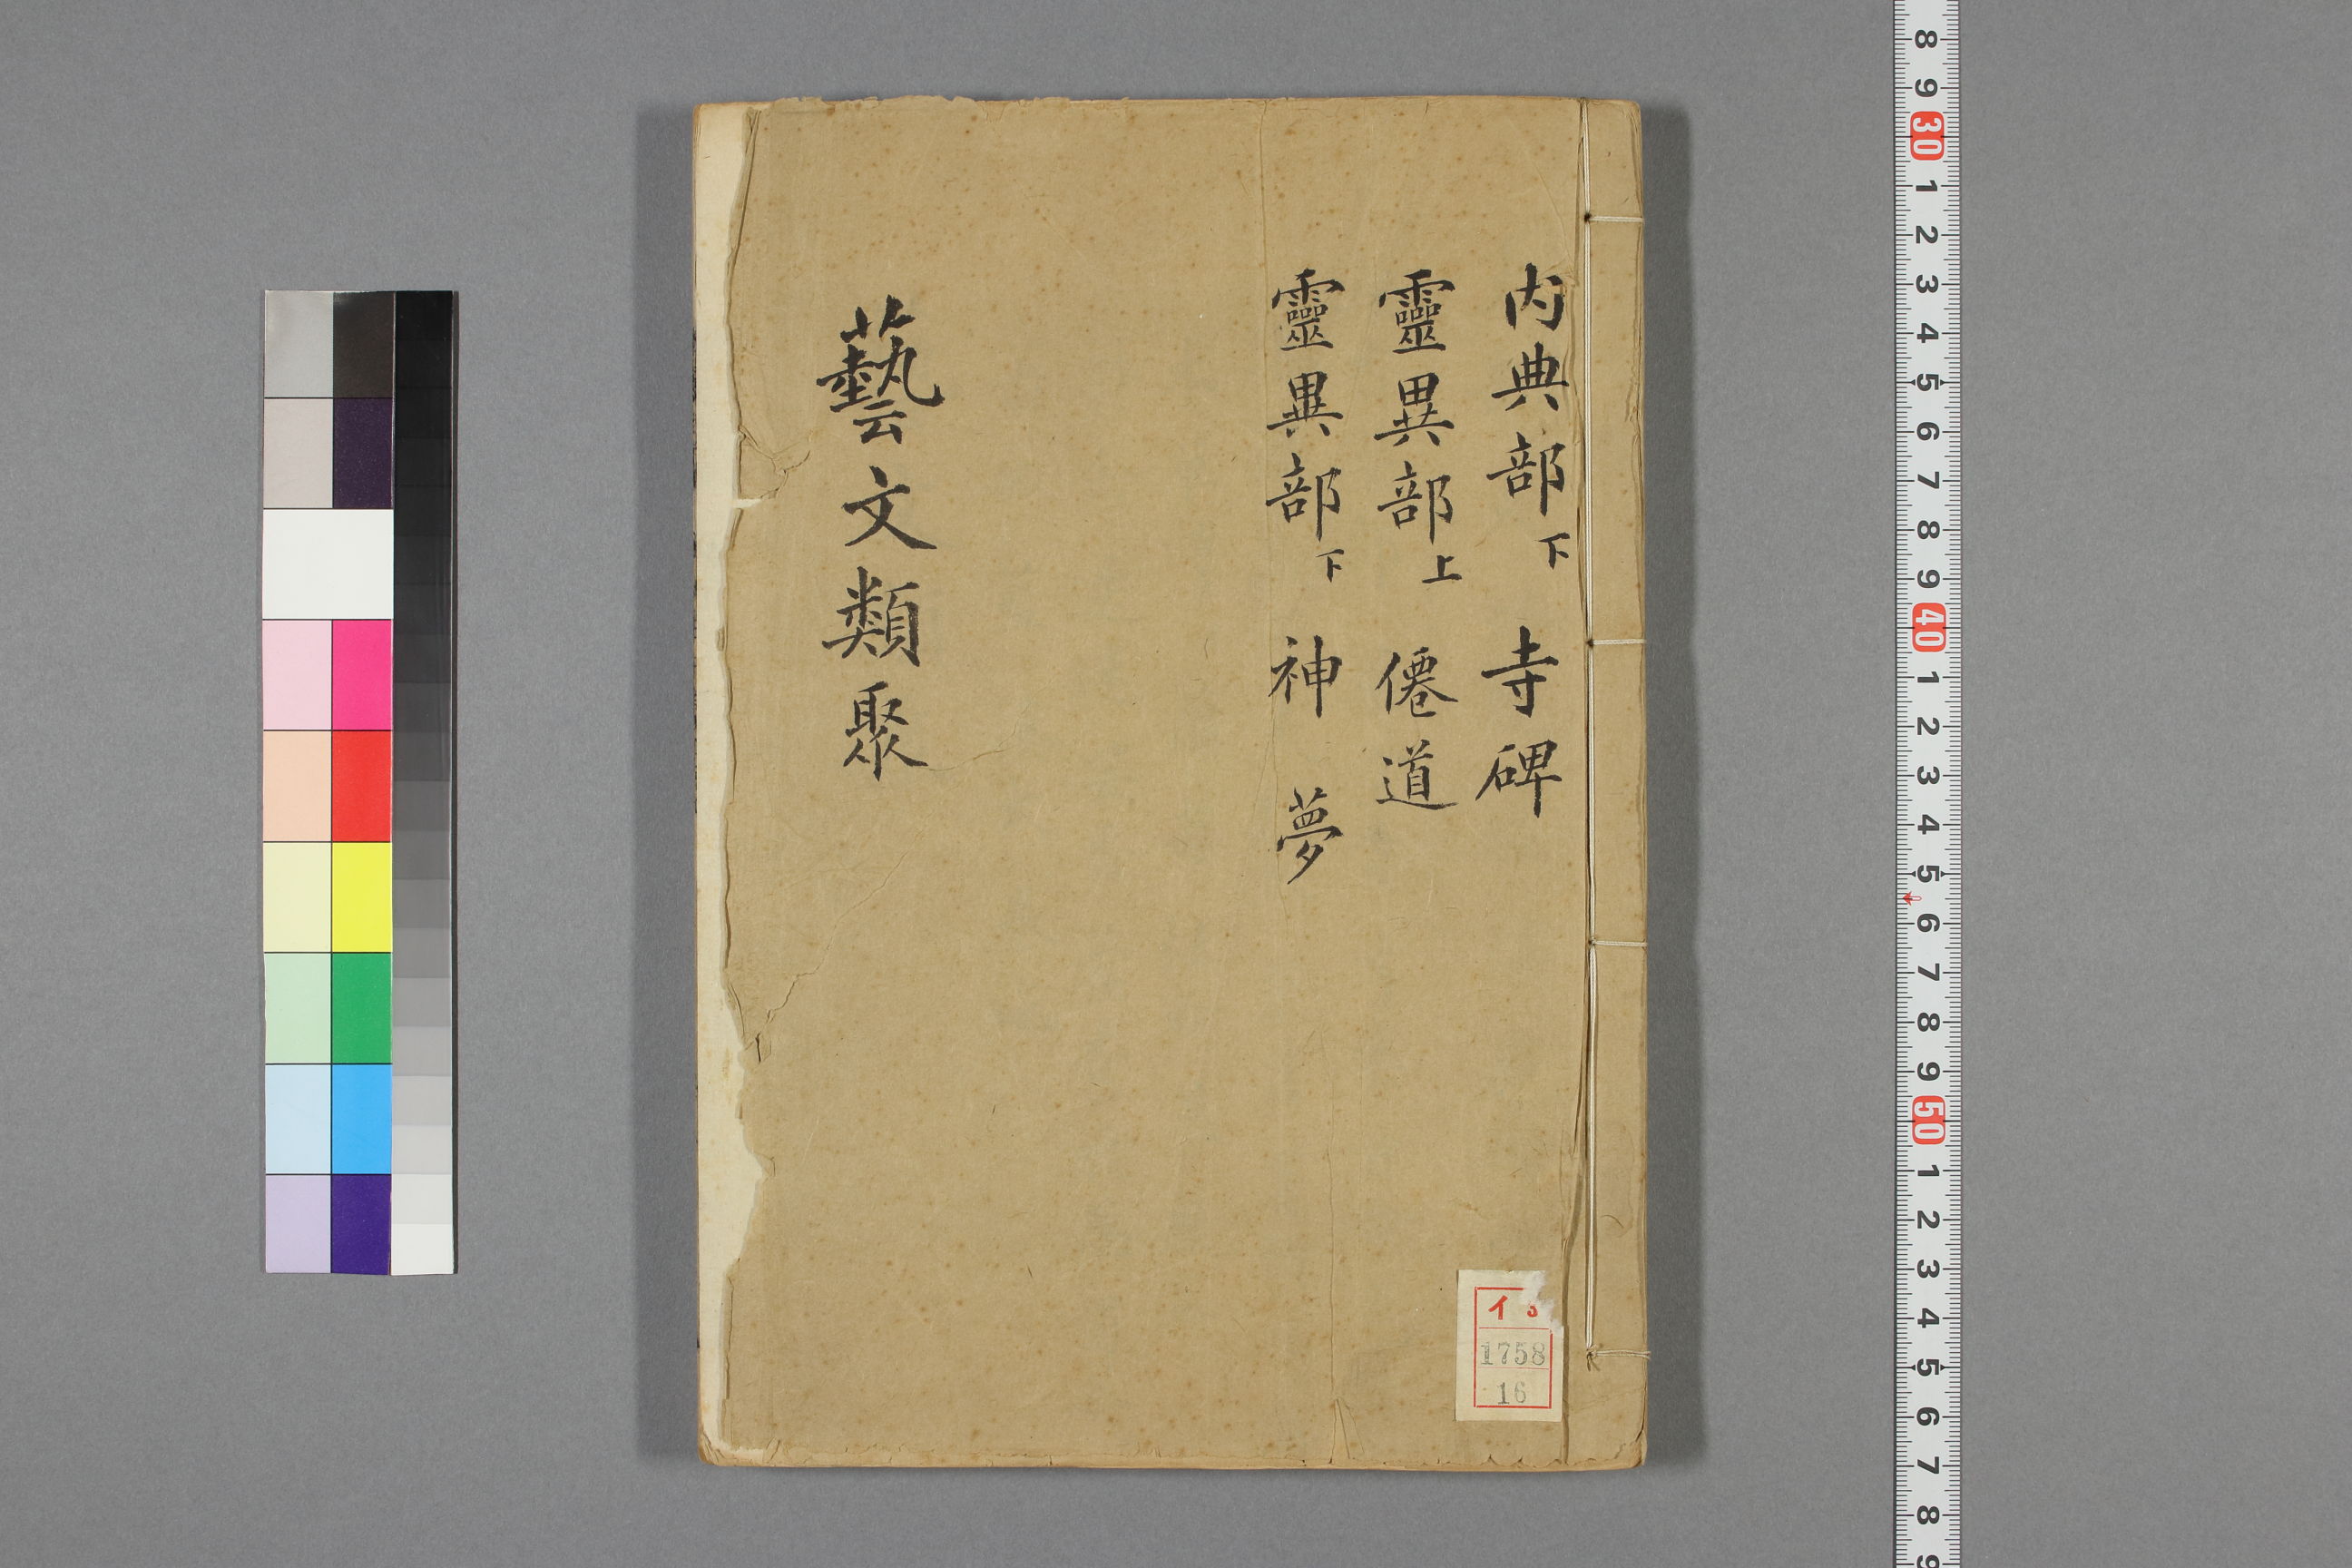 內典部下 寺碑
靈異部上 僊道
靈異部下 神 夢
藝文類聚
イ
1758
16
8
9
30
1
2
3
4
5
6
7
8
9
40
1
2
3
4
5
6
7
8
9
50
1
2
3
4
5
6
7
8